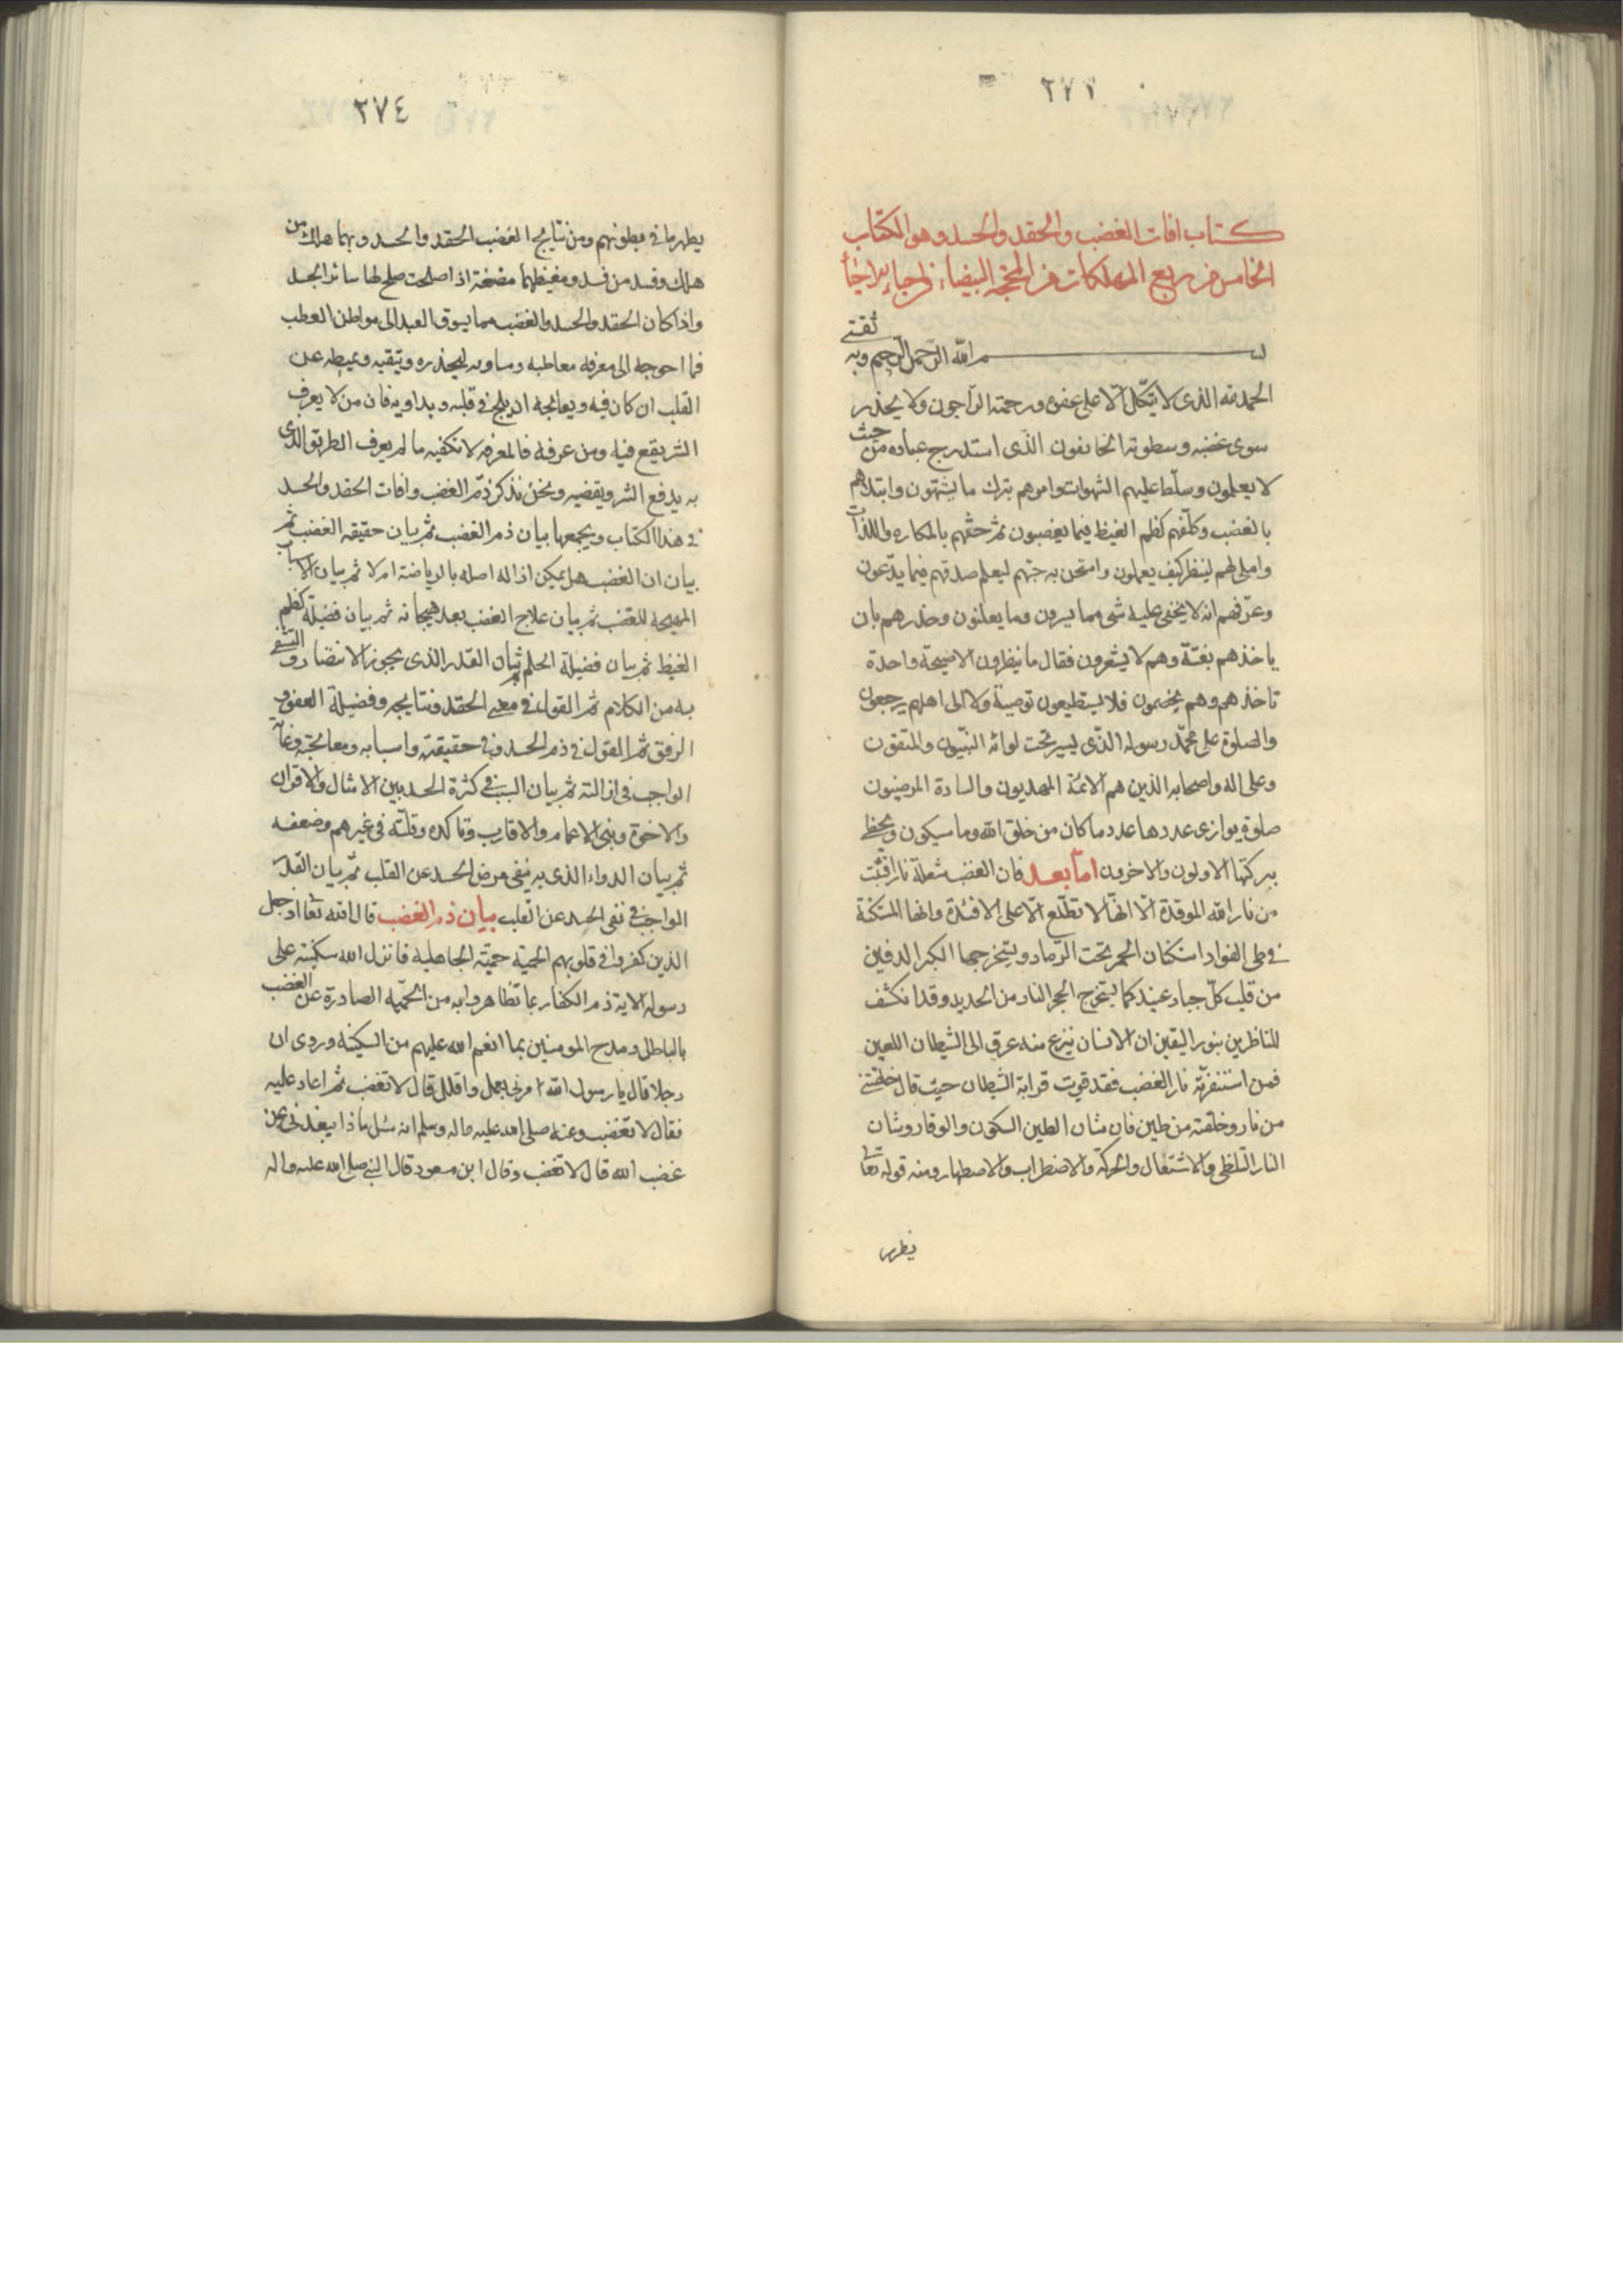 ٢٧٣
كتاب افات الغضب والحقد والحسد وهو الكتاب
الخامس من ربع المهلكات من المحجة البيضاء في احياء الاحياء
بسم الله الرحمن الرحيم وبه ثقتي
الحمد لله الذى لا يتكل الا على عفوه ورحمته الراجون ولا يحذر
سوى غضبه وسطوته الخايفون الذى استدرج عباده من حيث
لا يعلمون وسلط عليهم الشهوات وامرهم بترك ما يشتهون وابتلاهم
بالغضب وكلفهم كظم الغيظ فيما يغضبون ثم حفهم بالمكاره واللذات
واملى لهم لينظر كيف يعملون وامتحن به حبهم ليعلم صدقهم فيما يدعون
وعرفهم انه لا يخفى عليه شى مما يسرون وما يعلنون وحذرهم بان
ياخذهم بغتة وهم لا يشعرون فقال ما ينظرون الا صيحة واحدة
تاخذهم وهم يخصمون فلا يستطيعون توصية ولا الى اهلهم يرجعون
والصلوة على محمد رسوله الذى يسير تحت لوائه النبيون والمتقون
وعلى اله واصحابه الذين هم الائمة المهديون والسادة المرضيون
صلوة يوازى عددها عدد ما كان من خلق الله وما سيكون ويحظى
ببركتها الاولون والاخرون اما بعد فان الغضب شعلة نار اقتبست
من نار الله الموقدة الا انها لا تطلع الا على الافئدة وانها المستكنة
في طى الفواد استكنان الجمر تحت الرماد ويستخرجها الكبر الدفين
من قلب كل جبار عنيد كما يستخرج الحجر النار من الحديد وقد انكشف
للناظرين بنور اليقين ان الانسان ينزع منه عرق الى الشيطان اللعين
فمن استفزته نار الغضب فقد قويت قرابة الشيطان حيث قال خلقتني
من نار وخلقته من طين فان شان الطين السكون والوقار وشان
النار التلظى والاشتعال والحركة والاضطراب والاصطهار ومنه قوله تعا
يظهر
٢٧٤
يظهر ما فى بطونهم ومن نتايج الغضب الحقد والحسد وبهما هلك من
هلك وفسد من فسد ومغيظهما مضغة اذا صلحت صلح لها سائر الجسد
واذا كان الحقد والحسد والغضب مما يسوق العبد الى مواطن العطب
فما احوجه الى معرفة معاطبه ومساويه ليحذره ويتقيه ويميطه عن
القلب ان كان فيه ويعالجه ان يلج في قلبه ويداويه فان من لا يعرف
الشر يقع فيه ومن عرفه فالمعرفة لا تكفيه ما لم يعرف الطريق الذى
به يدفع الشر ويقصيه ونحن نذكر ذم الغضب وافات الحقد والحسد
في هذا الكتاب ويجمعها بيان ذم الغضب ثم بيان حقيقة الغضب ثم
بيان ان الغضب هل يمكن ازالة اصله بالرياضة ام لا ثم بيان الاسباب
المهيجة للغضب ثم بيان علاج الغضب بعد هيجانه ثم بيان فضيلة كظم
الغيظ ثم بيان فضيلة الحلم ثم بيان القدر الذى يجوز الانتصار والتشفى
به من الكلام ثم القول في معنى الحقد ونتايجه وفضيلة العفو و
الرفق ثم القول في ذم الحسد وفى حقيقته واسبابه ومعالجته وغاية
الواجب فى ازالته ثم بيان السبب فى كثرة الحسد بين الامثال والاقران
والاخوة وبنى الاعمام والاقارب وتاكده وقلته فى غيرهم وضعفه
ثم بيان الدواء الذى به ينفى مرض الحسد عن القلب ثم بيان القدر
الواجب في نفى الحسد عن القلب بيان ذم الغضب قال الله تعا اذ جعل
الذين كفروا فى قلوبهم الحمية حمية الجاهلية فانزل الله سكينته على
رسوله الاية ذم الكفار بما تظاهروا به من الحمية الصادرة عن الغضب
بالباطل ومدح المومنين بما انعم الله عليهم من السكينة وروى ان
رجلا قال يا رسول الله امرنى بعمل واقلل قال لا تغضب ثم اعاد عليه
فقال لا تغضب وعنه صلى الله عليه واله وسلم انه سئل ماذا يبعدنى من
غضب الله قال لا تغضب وقال ابن مسعود قال النبي صلى الله عليه واله